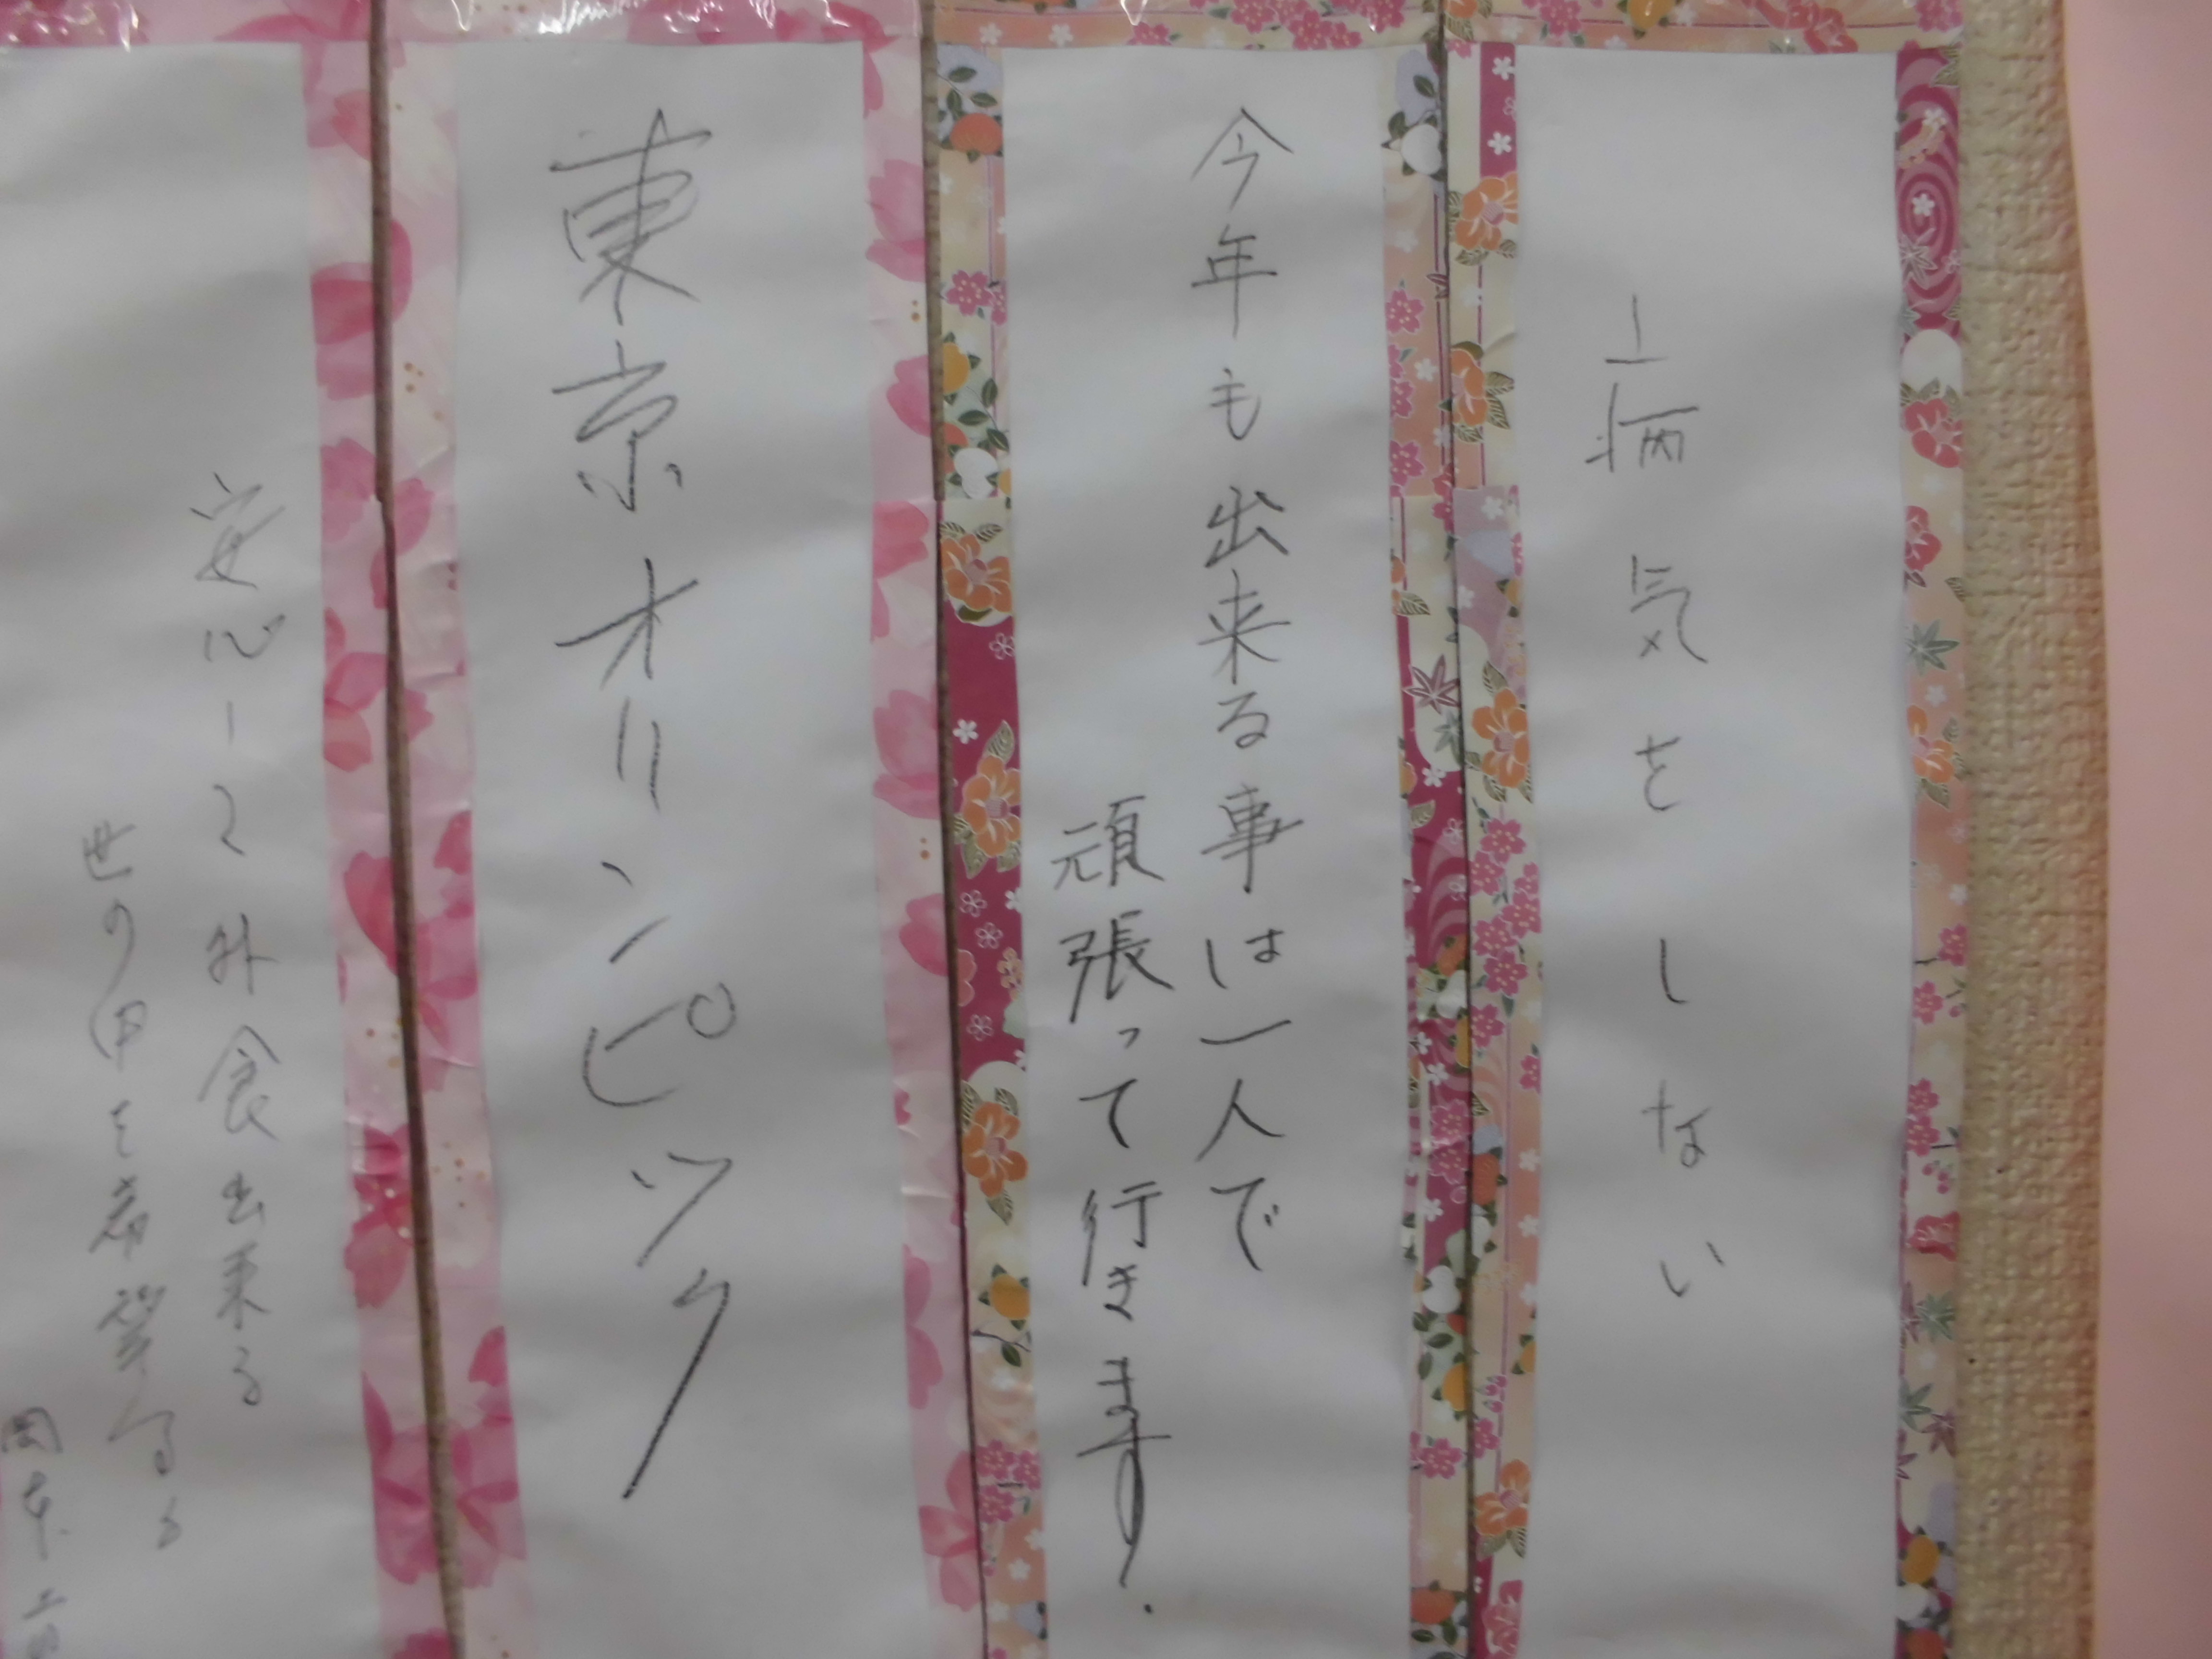 病気をしない
今年も出来る事は一人で
頑張って行きます.
東京オリンピック
安心して外食出来る
世の中を希望する
岡本